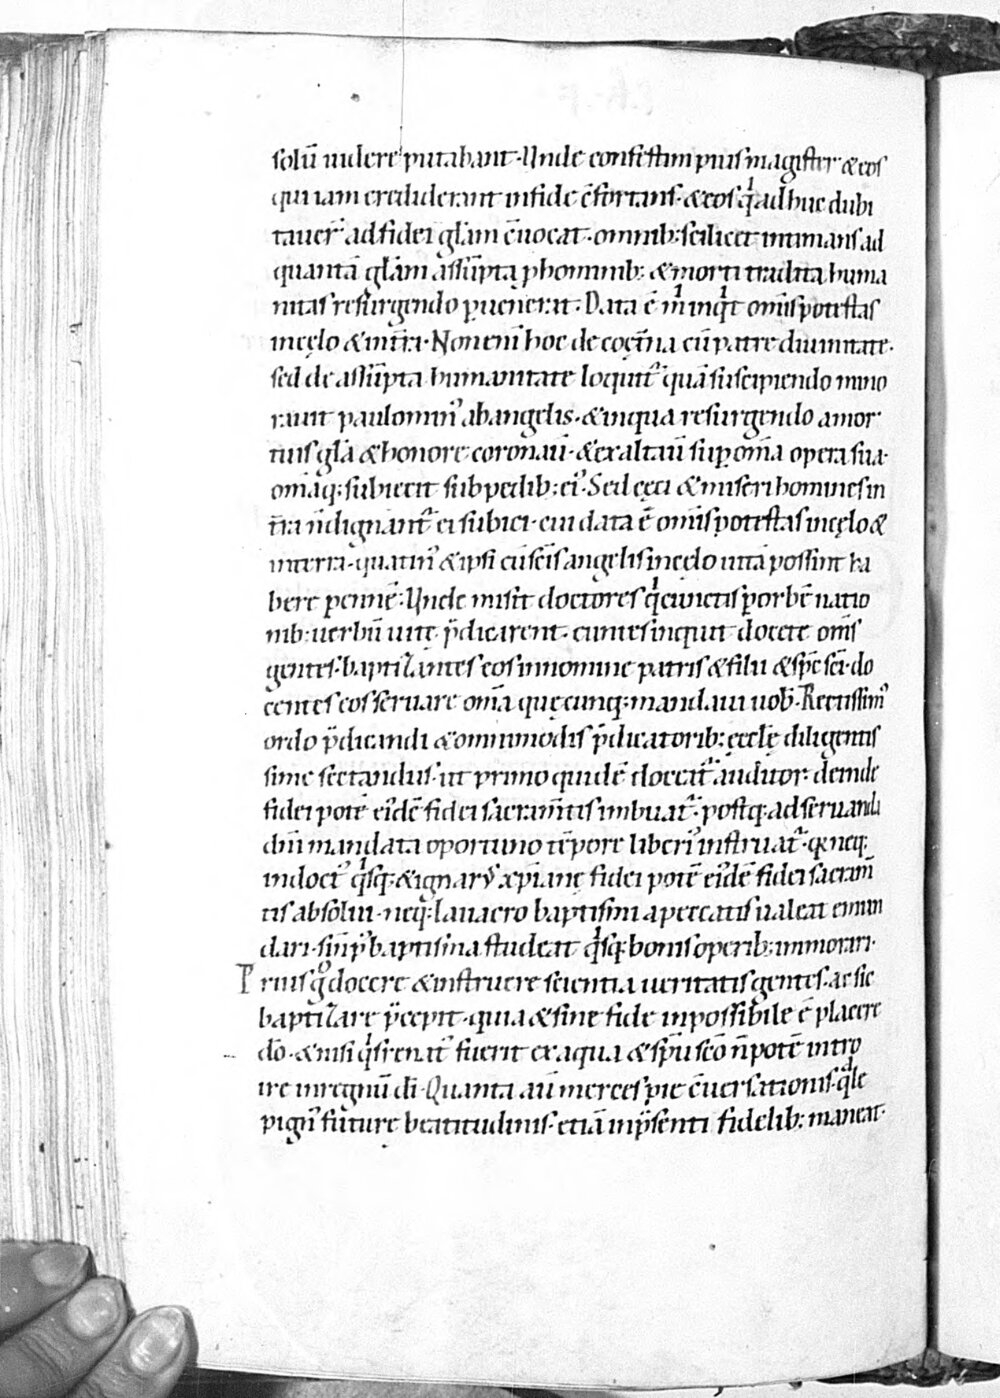 solū uidere putabant. Unde confestim pius magister & eos
qui iam crediderant in fide c̄fortans. & eos q̍ adhuc dubi
tauer̄ ad fidei gl̄am c̄uocat. omnib; scilicet intimans ad
quantā gl̄am assūpta p hominib; & morti tradita huma
nitas resurgendo puenerat. Data ē m̍ inq̍t om̄is potestas
in cęlo & in t̄ra. Non eni hoc de coęt̄na cū patre diuinitate.
sed de assūpta humanitate loquit᷑ quā suscipiendo mino
rauit paulomin᷒ ab angelis. & in qua resurgendo a mor
tuis gl̄a & honore coronauī. & exaltauī sup om̄a opera sua.
om̄aq; subiecit sub pedib; ei᷒. Sed cęci & miseri homines in
t̄ra n̄dignant᷑ ei subici. cui data ē om̄is potestas in cęlo &
in terra. quatin᷒ & ipsi cū sc̄is angelis in cęlo uitā possint ha
bere pennē. Unde misit doctores q̍ cunctis p orbē natio
nib; uerbū uitę p̄dicarent. euntes inquit docete om̄s
gentes. baptizantes eos in nomine patris & filii & sp̄c sc̄i. do
centes eos seruare om̄a quęcunq; mandaui uob̄. Rectissim᷒
ordo p̄dicandi & omnimodis p̄dicatorib; ęcclę diligentis
sime sectandus. ut primo quidē doceat᷑ auditor. deinde
fidei potē ei᷒dē fidei sacram̄tis imbuat᷑. postq; ad seruanda
dn̄i mandata oportuno tēpore liberi᷒ instruat᷑. q̄ neq;
indoct᷒ q̍sq; & ignar᷒ xp̄ianę fidei potē ei᷒dē fidei sacram̄
tis absolui. neq; lauacro baptismi a peccatis ualeat emun
dari. si n̄ p᷒ baptisma studeat q̍sq; bonis operib; inmorari.
Prius g̊ docere & instruere scientia ueritatis gentes. ac sic
baptizare p̄cepit. quia & sine fide inpossibile ē placere
dō. & nisi q̍s renat᷒ fuerit ex aqua & sp̄u sc̄o n̄ potē intro
ire in regnū dī. Quanta aū merces pie c̄uersationis. q̍le
pign᷒ futurę beatitudinis. etiā in p̄senti fidelib; maneat.